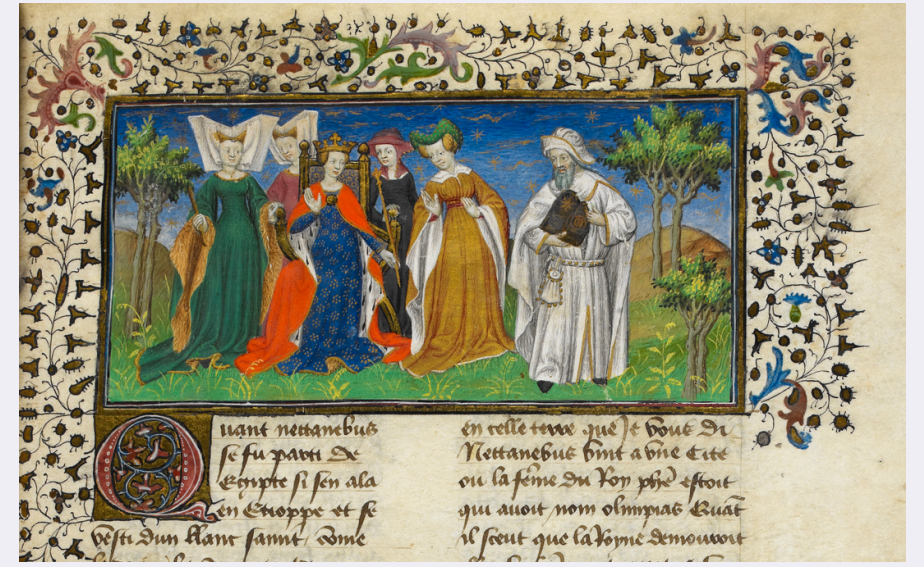 Quant nectanebus
se fu parti de
Egipte si sen ala
en Etioppe et se
vesti dun blanc samit, come
en celle terre que Je vous di
Nectanebus vint a vne Cite
ou la fēme du Roy phē estoit
qui auoit nom olimpias Quāt
il sceut que la Royne demouroit